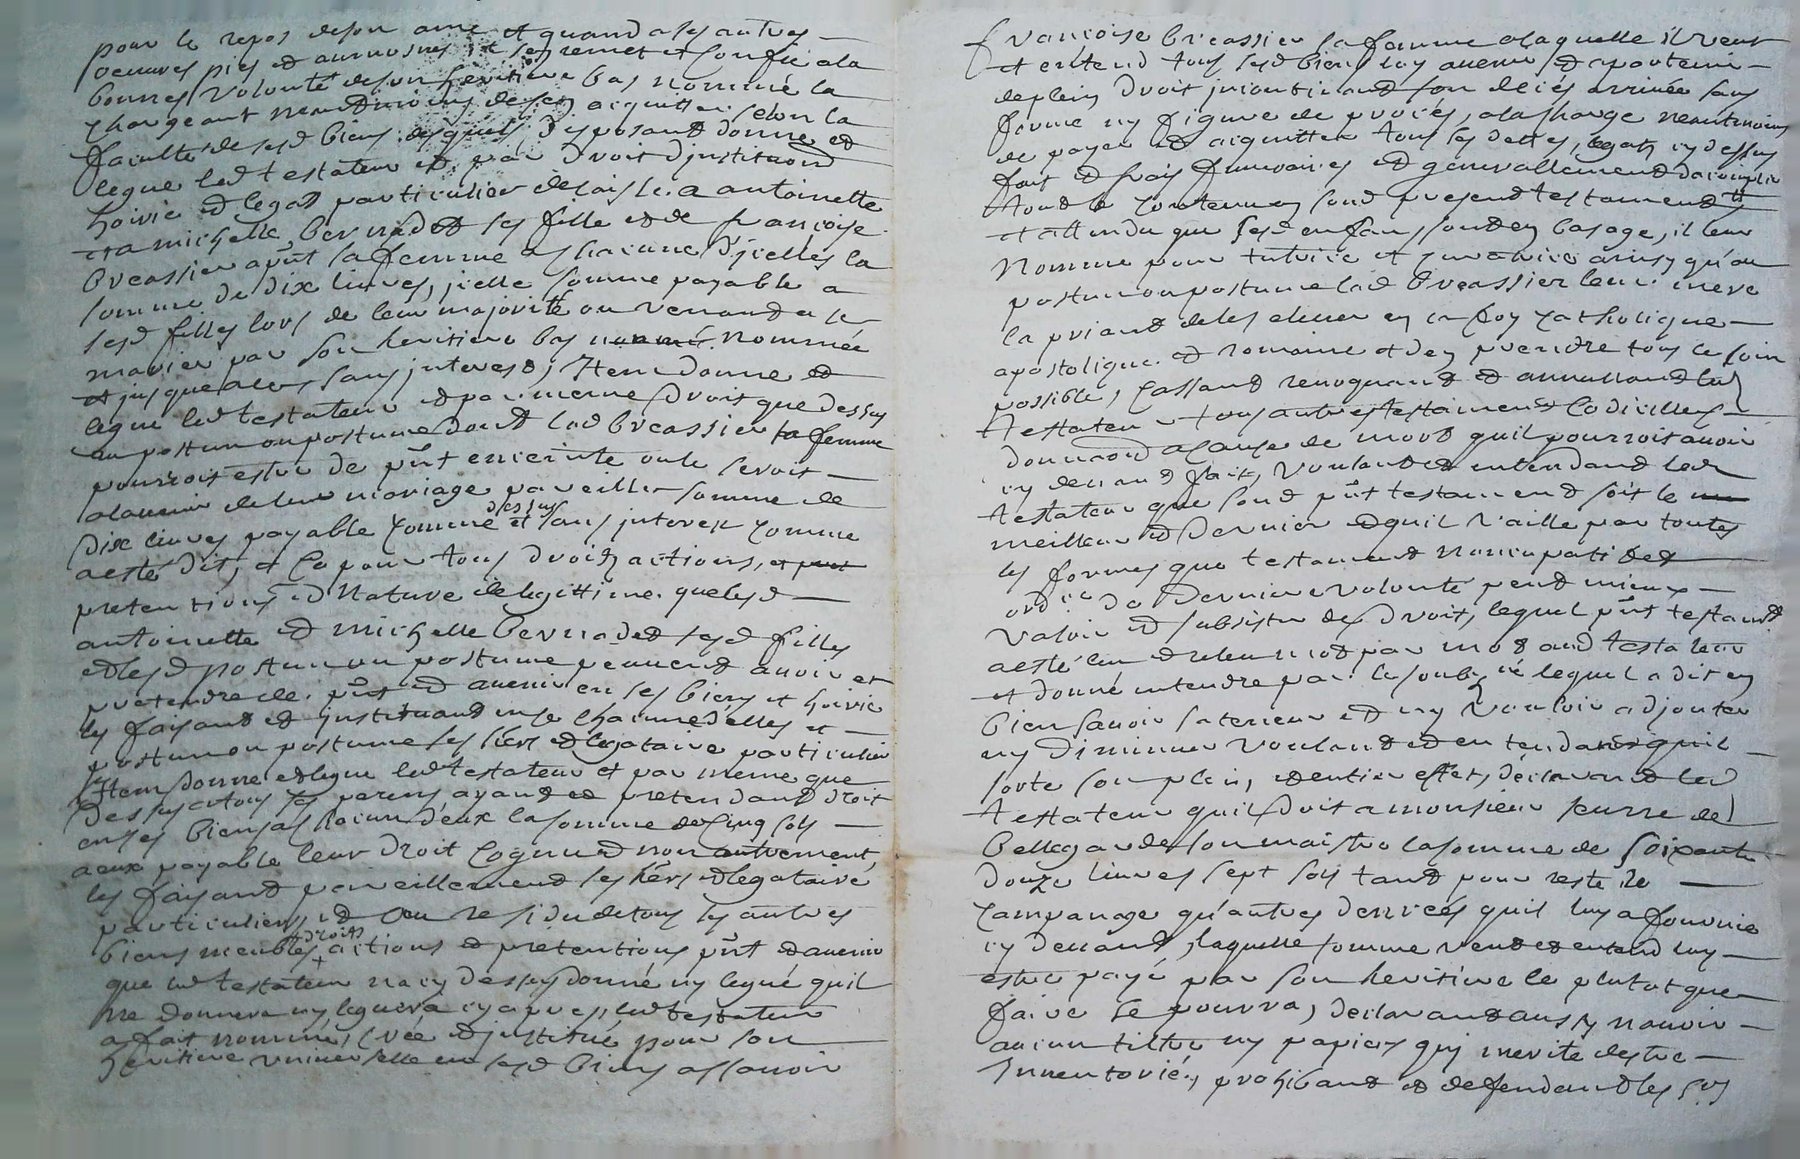 pour le repos de son ame et quand a ses autres
oeuvres pies et aumosnes il se remet et confie a la
bonnes volonté de son heritiere bas nommé la
chargeant neantmoins de sen aiquitter selon la
faculté de sesd biens, desquels disposant donne et
legue led testateur et par droit dinstitution
hoirie et legat particulier delaisse a antoinette
et a michelle bernadet ses fille et de françoise
breassier apñt sa femme a chacune d'jcelles la
somme de dix livres, jcelle somme payable a
sesd filles lors de leur majorité ou venand a se
marier par son heritiere bas nommé nommée
et jusque alors sans jnterest, Item donne et
legue led testateur et par meme droit que dessus
au postum ou postume dont lad breassier sa femme
pourroit estre de pñt enceinte ou le seroit
a lavenir de leur mariage pareille somme de
dix livres payable comme dessus et sans jnterest comme
a esté dit, et ce pour tous droits actions, et pnt
pretentions et nature de legittime que lesd
antoinette et michelle bernaded sesd filles
et lesd postum ou postume peuvent avoir et
pretendre de pñt et avenir en ses biens et hoirie
les faisant et jnstituant un chacune d'elles et
postum ou postume ses hers et legataire particulier
Item donne et legue led testateur et par meme que
dessus a tous ses parens ayant et pretendant droit
en ses biens a chacun d'eux la somme de cinq sols
a eux payable leur droit cognu et non autrement,
les faisant pareillement ses hers et legataire
particuliers, et au residu de tous ses autres
biens meubles droits actions et pretentions pñt et avenir
que led testateur na cy dessus donné ny legué quil
ne donnera ny leguera cy apres, led testateur
a fait nommé, créé et jnstitué pour son
heritiere universelle en sesd biens assavoir
françoise breassier sa femme a laquelle il veut
et entend tous sesd biens luy avenir et apartenir
de plein droit jncontinent son decés arrivée sans
forme ny figure de procés, a la charge neantmoins
de payer et aiquitter tous ses dettes, legats cy dessus
fait et frais funeraires et generallement daccomplir
tout le contenu en sond present testament
et attendu que sesd enfans sont en bas age, il leur
nomme pour tutrice et curatrice ainsy qu'au
postum ou postume lad breassier leur mere
la priant de les elever en la foy catholique
apostolique et romaine et den prendre tous le soin
possible, cassant revoquant et annullant led
testateur tous autres testament codicilles
donnaon a cause de mort quil pourroit avoir
cy devand fait, voulant et entendant led
testateur que sond pñt testament soit le
meilleur et dernier et quil vaille par toutes
les formes que testament noncupatif et
ord.re de derniere volonté peut mieux
valoir et subsister de droit, lequel pñt testamt
a esté leu et releu mot par mot aud testateur
et donné entendre par le soubsné lequel a dit en
bien savoir la teneur et ny vouloir adjouter
ny diminuer voulant et entendant quil
sorte son plein, et entier effet, declarant led
testateur quil doit a monsieur seurre de
bellegarde son maistre la somme de soixante
douze livres sept sols tant pour reste de
campanage qu'autres denrées quil luy a fournie
cy devant, laquelle somme veut et entend luy
estre payé par son heritiere le plutot que
faire se pourra, declarant aussy navoir
aucun tiltre ny papiers quj merite destre
Inventorié, prohibant et defendant les